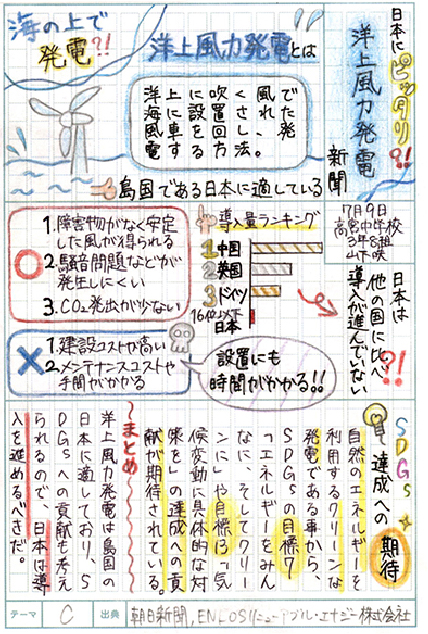 日本にピッタリ?!
洋上風力発電
新聞
7月9日
高宮中学校
3年8組
山下 咲
海の上で
発電?!
洋上風力発電とは
洋上に吹く風で
海に設置された
風車を回し、発
電する方法。
島国である日本に適している
1.障害物がなく安定
した風が得られる
2.騒音問題などが
発生しにくい
3.CO₂発出が少ない
1.建設コストが高い
2.メンテナンスコストや
手間がかかる
導入量ランキング
1 中国
2 英国
3 ドイツ
16位以下
日本
設置にも
時間がかかる!!
日本は
他の国に比べ
導入が進んでいない
?!
SDGs
達成への期待
自然のエネルギーを
利用するクリーンな
発電である事から、
SDGsの目標7
「エネルギーをみん
なに、そしてクリー
ンに」や目標13「気
候変動に具体的な対
策を」の達成への貢
献が期待されている。
まとめ
洋上風力発電は島国の
日本に適しており、S
DGsへの貢献も考え
られるので、日本は導
入を進めるべきだ。
テーマ C 出典 朝日新聞,ENEOSリニューアブル・エナジー株式会社